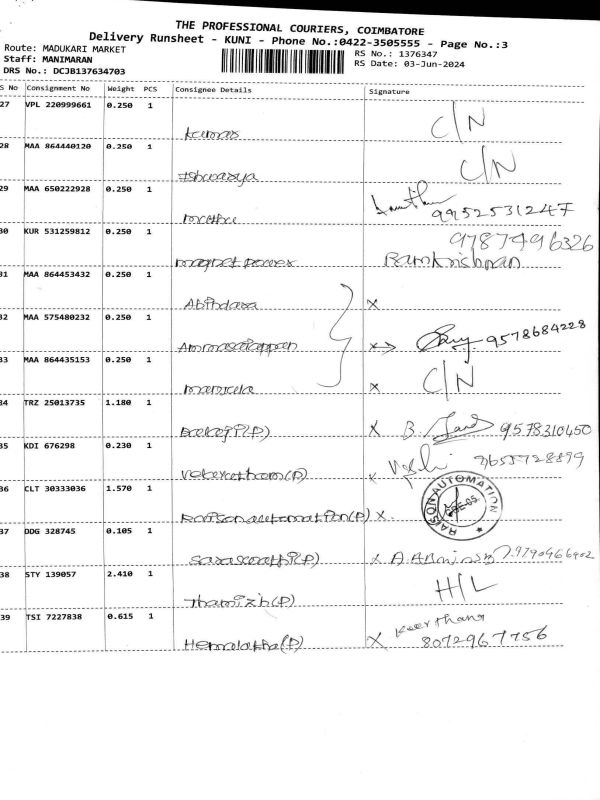 THE PROFESSIONAL COURIERS, COIMBATORE
Delivery Runsheet - KUNI - Phone No.:0422-3505555 - Page No.:3
Route: MADUKARI MARKET
RS No.: 1376347
Staff: MANIMARAN
RS Date: 03-Jun-2024
DRS No.: DCJB137634703
S No Consignment No Weight PCS Consignee Details Signature
27 VPL 220999661 0.250 1
C/N
kumar
28 MAA 864440120 0.250 1
C/N
Ishwarya
29 MAA 650222928 0.250 1
9952531247
30 KUR 531259812 0.250 1
9787496326
magnet power Ramkrishnan
31 MAA 864453432 0.250 1
Abindara x
32 MAA 575480232 0.250 1
9578684228
Ammasaiappan x
33 MAA 864435153 0.250 1
C/N
x
34 TRZ 25013735 1.180 1
Balaji(P) x B. 9578310450
35 KDI 676298 0.230 1
(P) x
36 CLT 30333036 1.570 1
RAISON AUTOMATION
Raison automation(P) x
37 DDG 328745 0.105 1
Saraswathi(P) x
38 STY 139057 2.410 1
H/L
Thamizh(P)
39 TSI 7227838 0.615 1
Keerthana
Hemalatha(P) x 8072967756